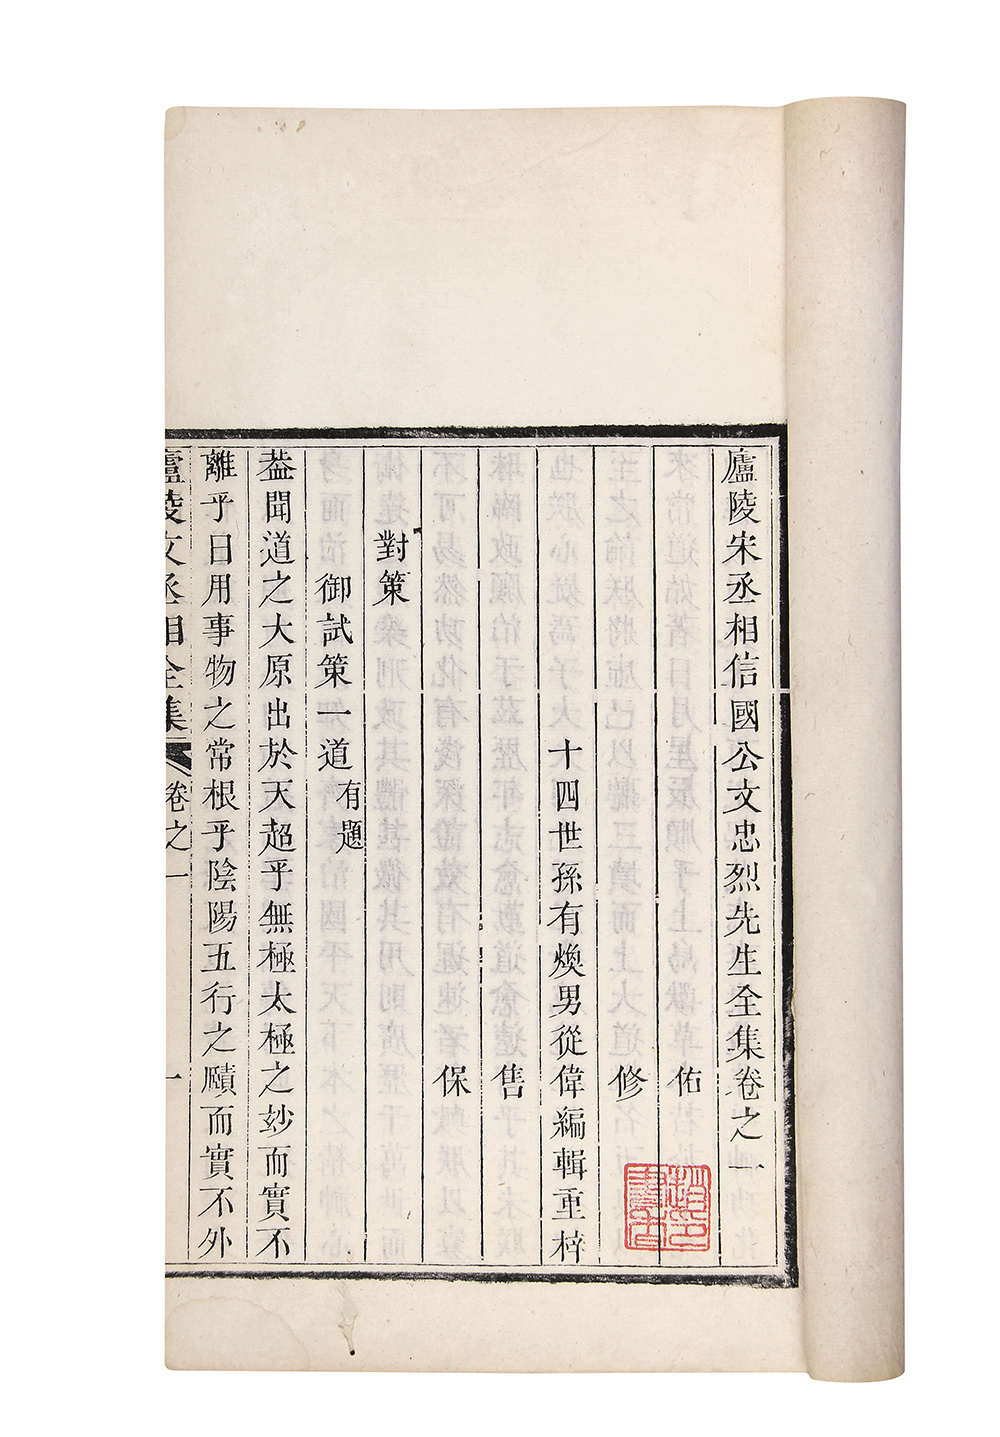 廬陵宋丞相信國公文忠烈先生全集卷之一
佑
修
十四世孫有煥男從偉編輯重梓
售
保
對策
御試策一道有題
葢聞道之大原出於天超乎無極太極之妙而實不
離乎日用事物之常根乎陰陽五行之賾而實不外
廬陵文丞相全集 卷之一 一